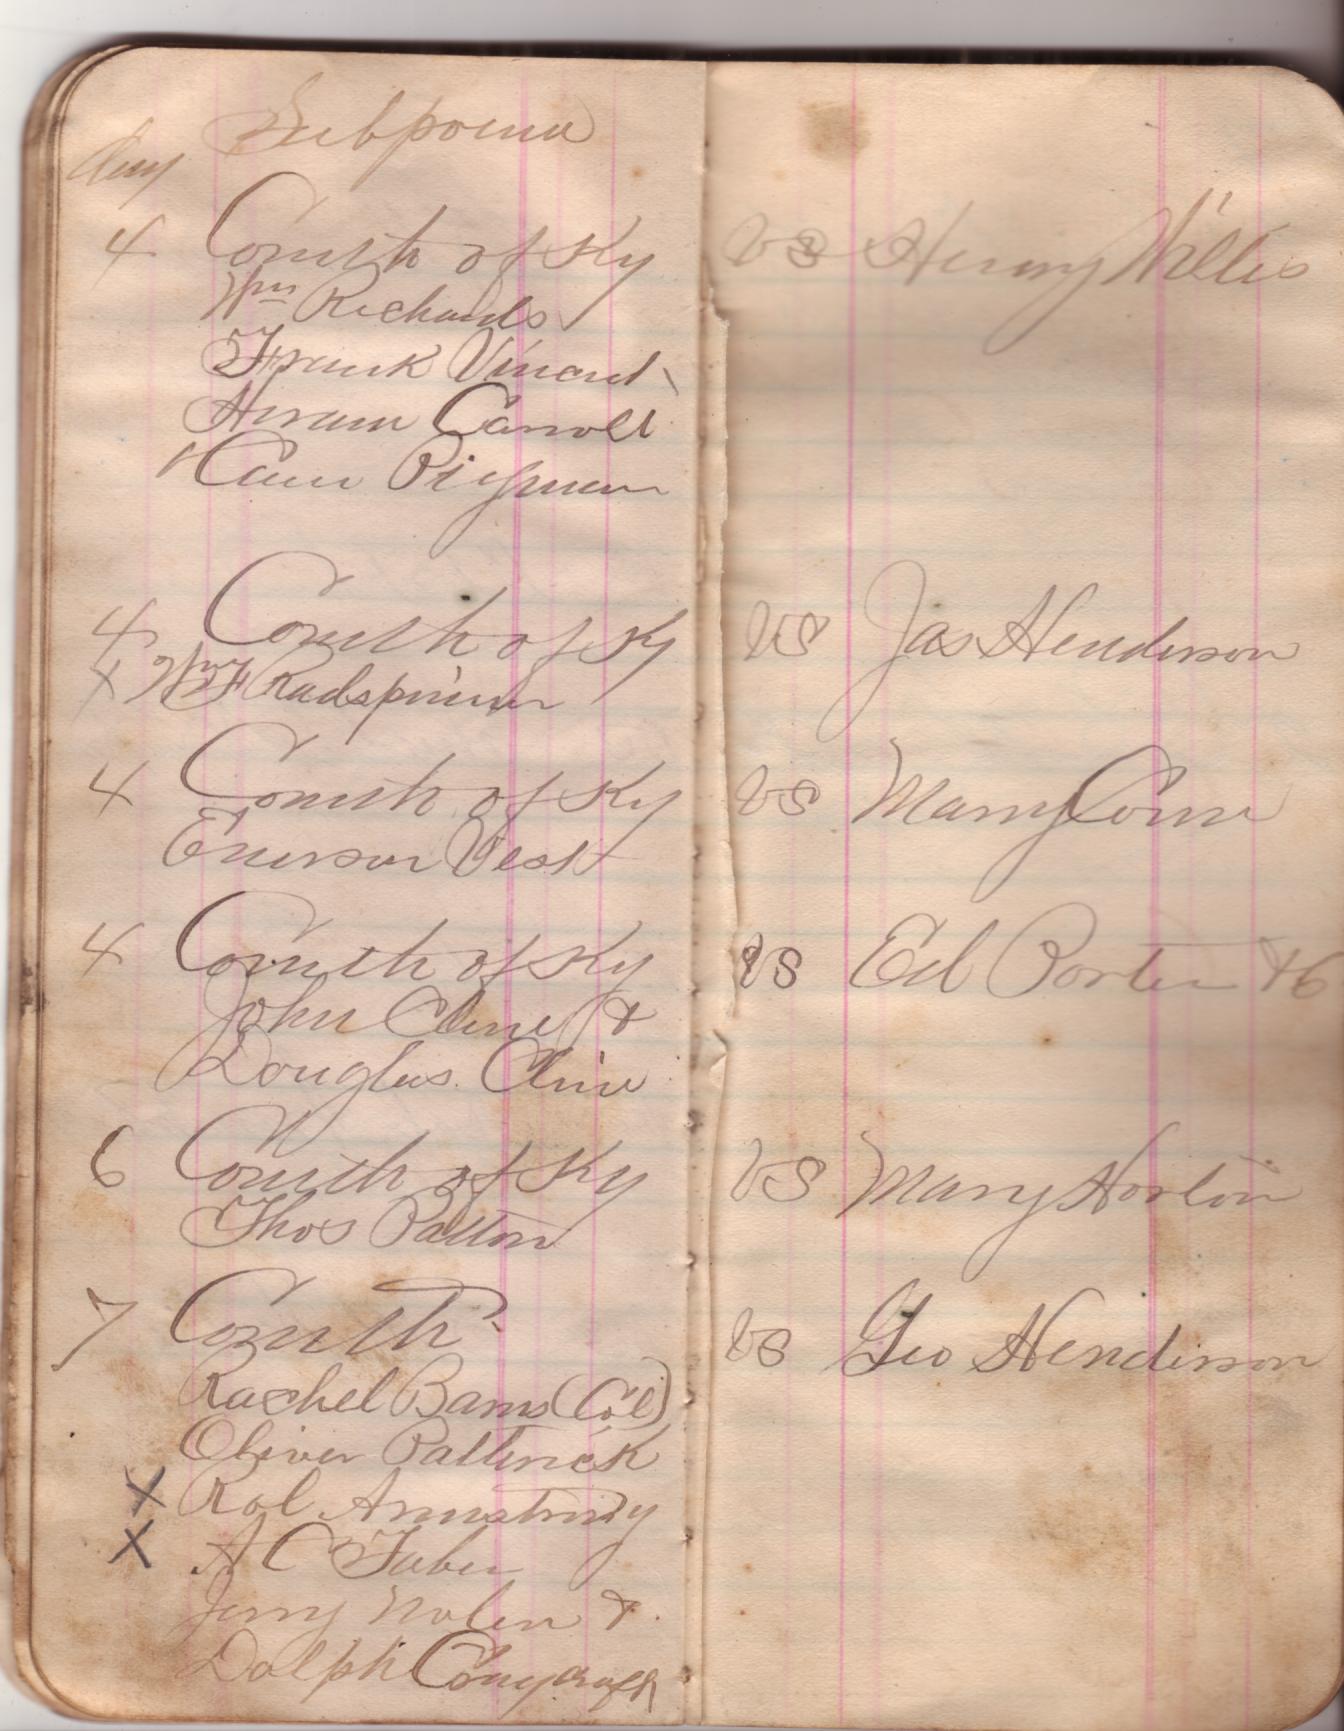 Subpoena
day
4 Comlth of Ky vs Henry Willis
Wm Richards
Frank Vinard
Hiram Carroll
Cam Pigman
4 Comlth of Ky vs Jas Henderson
x Wm F Radspinner
4 Comlth of Ky vs Marry Conn
Emerson Vest
4 Comlth of Ky vs Ed Porter &c
John Cline &
Douglas Cline
6 Comlth of Ky vs Mary Horton
Thos Patton
7 Comlth vs Geo Henderson
Rachel Barns (Col)
Oliver Patterick
X Rol Armstrong
X A C Faber
Jerry Nolen &
Dolph